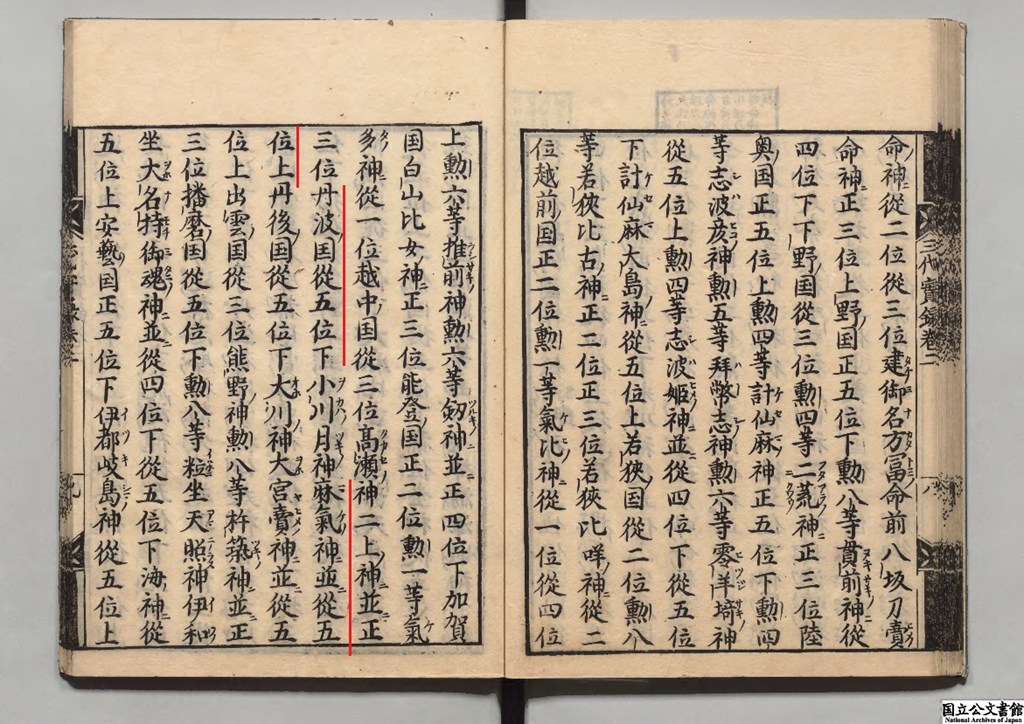 命神從二位從三位建御名方冨命前八坂刀賣
命神正三位上野国正五位下勲八等貫前神從
四位下下野国從三位勲四等二荒神正三位陸
奥国正五位上勲四等計仙麻神正五位下勲四
等志波彦神勲五等拜幣志神勲六等零羊埼神
從五位上勲四等志波姫神並從四位下從五位
下計仙麻大島神從五位上若狹国從二位勲八
等若狹比古神正二位正三位若狹比咩神從二
位越前国正二位勲一等氣比神從一位從四位
上勲六等推前神勲六等劔神並正四位下加賀
国白山比女神正三位能登国正二位勲一等氣
多神從一位越中国從三位髙瀬神二上神並正
三位丹波国從五位下小川月神麻氣神並從五
位上丹後国從五位下大川神大宮賣神並從五
位上出雲国從三位熊野神勲八等杵築神並正
三位播磨国從五位下勲八等粒坐天照神伊和
坐大名持御魂神並從四位下從五位下海神從
五位上安藝国正五位下伊都岐島神從五位上
三代實録巻二
八
九
国立公文書館
National Archives of Japan